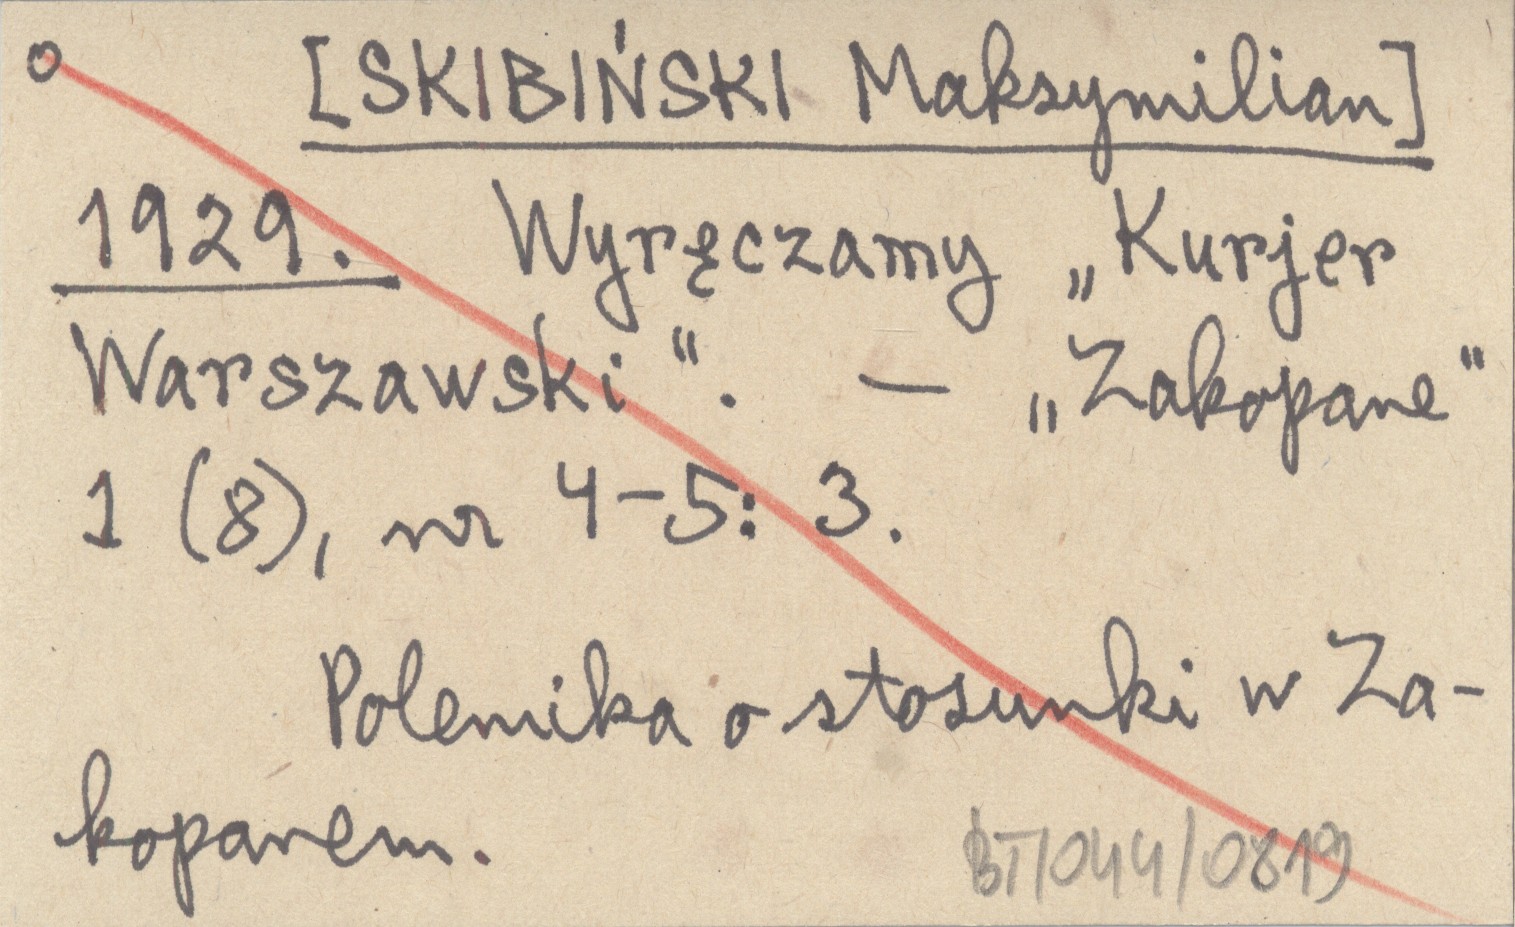 [SKIBIŃSKI Maksymilian]
1929. Wyręczamy „Kurjer
Warszawski“. — „Zakopane“
1 (8), nr 4-5: 3.
Polemika o stosunki w Za-
kopanem.
BT/044/0819